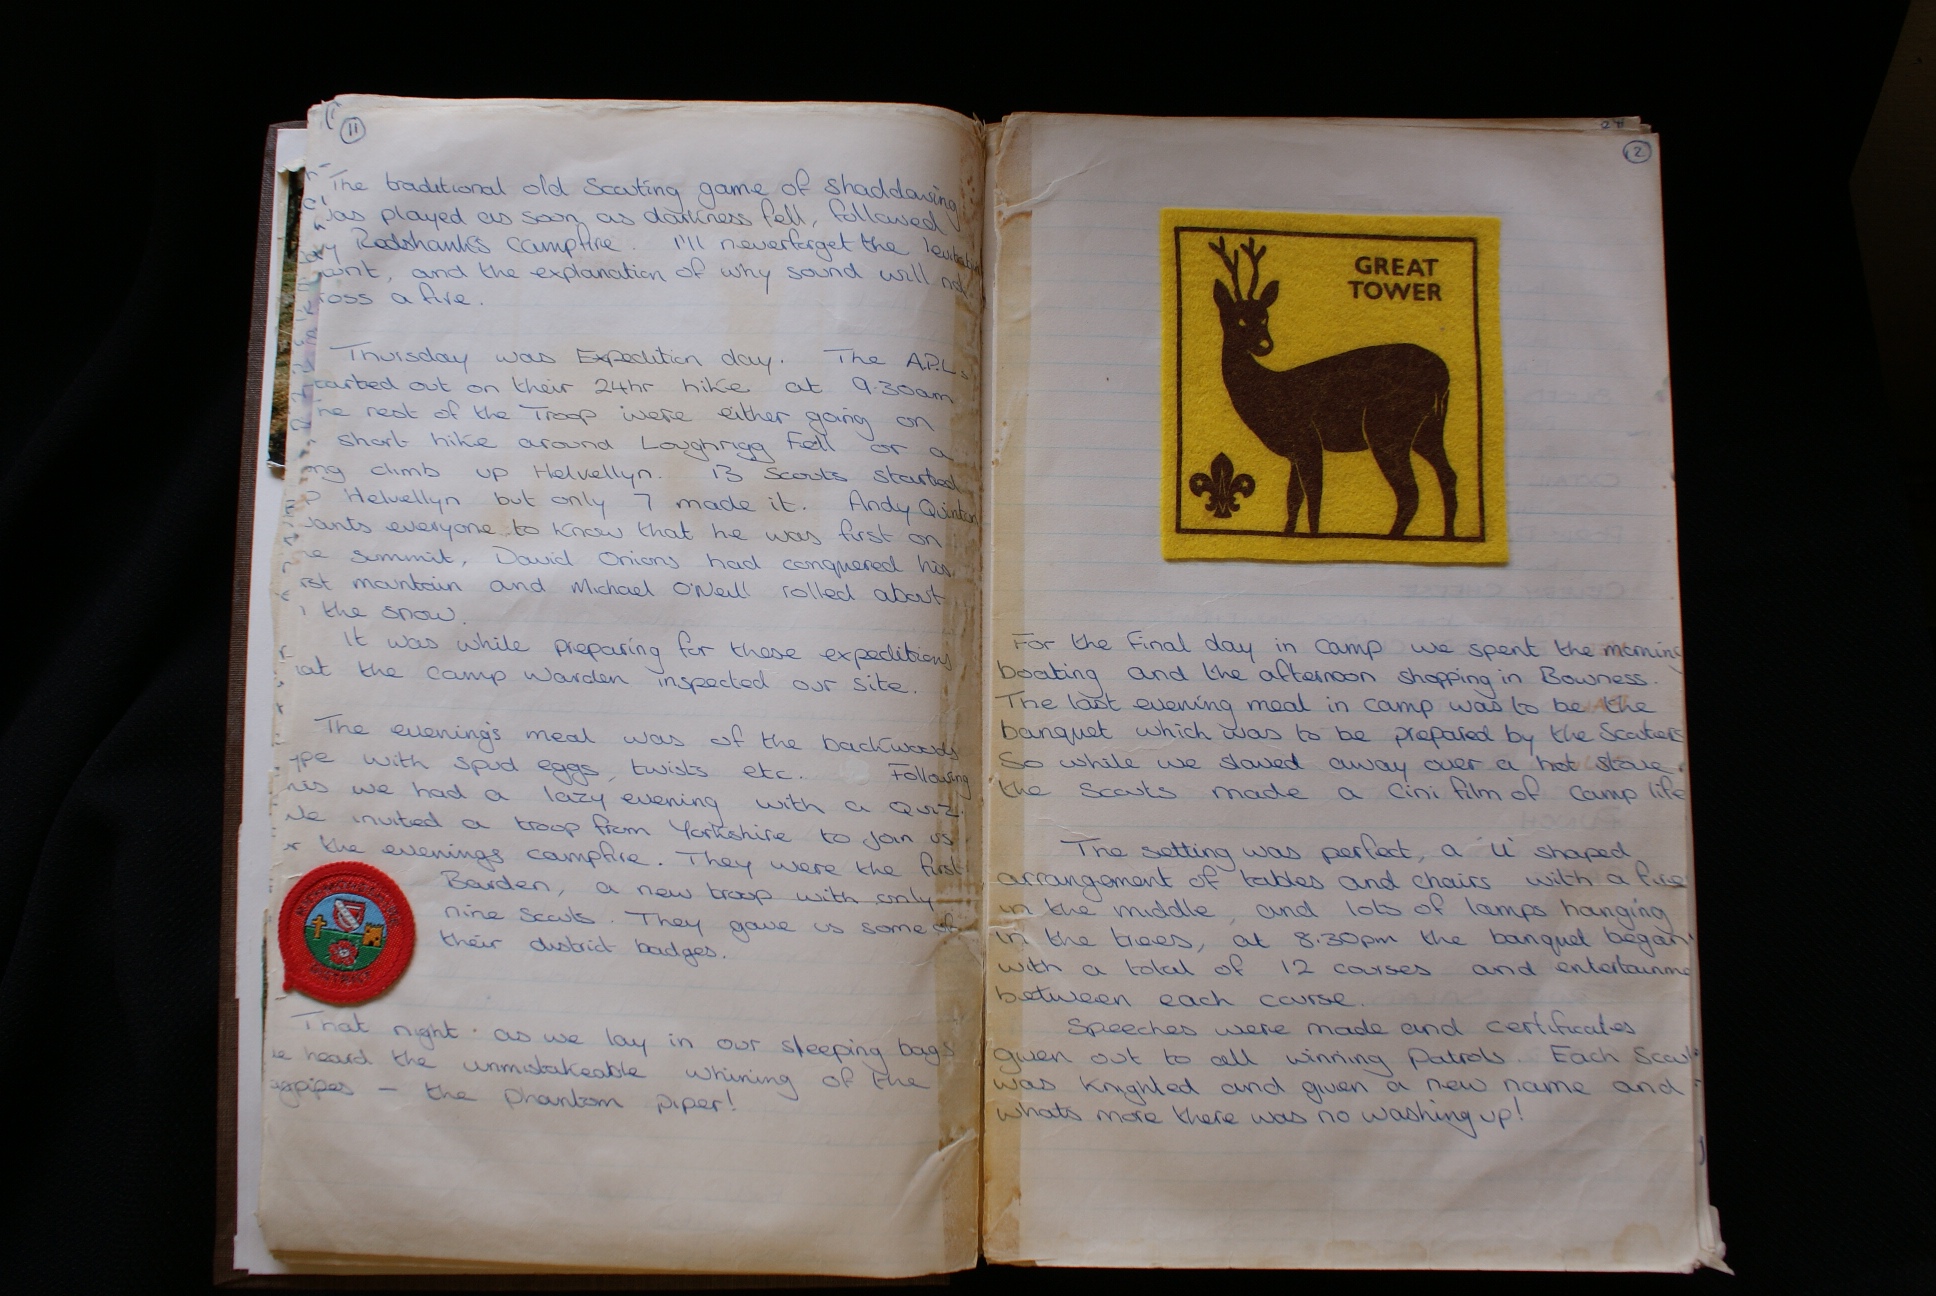 11
The traditional old Scouting game of shaddowing
was played as soon as darkness fell, followed
by Redshank's campfire. I'll never forget the
and the explanation of why sound will not
ross a fire.
Thursday was Expedition day. The A.P.L.s
tarted out on their 24hr hike at 9.30am
he rest of the Troop were either going on
short hike around Loughrigg Fell or a
ng climb up Helvellyn. 13 Scouts started
p Helvellyn but only 7 made it. Andy Quinton
ants everyone to know that he was first on
he summit, David Onions had conquered his
rst mountain and Michael O'Neill rolled about
the snow.
It was while preparing for these expeditions
at the Camp Warden inspected our site.
The evenings meal was of the backwoods
ype with spud eggs, twists etc. Following
his we had a lazy evening with a Quiz.
We invited a troop from Yorkshire to join us
r the evenings campfire. They were the first
Barden, a new troop with only
nine Scouts. They gave us some of
their district badges.
That night as we lay in our sleeping bags
e heard the unmistakeable whining of the
agpipes – the phantom piper!
2
GREAT
TOWER
For the final day in camp we spent the morning
boating and the afternoon shopping in Bowness.
The last evening meal in camp was to be the
banquet which was to be prepared by the Scouters
So while we slaved away over a hot stove
the Scouts made a cini film of camp life
The setting was perfect, a 'U' shaped
arrangement of tables and chairs with a fire
in the middle, and lots of lamps hanging
in the trees, at 8.30pm the banquet began
with a total of 12 courses and entertainme
between each course.
Speeches were made and certificates
given out to all winning Patrols. Each Scout
was Knighted and given a new name and
whats more there was no washing up!